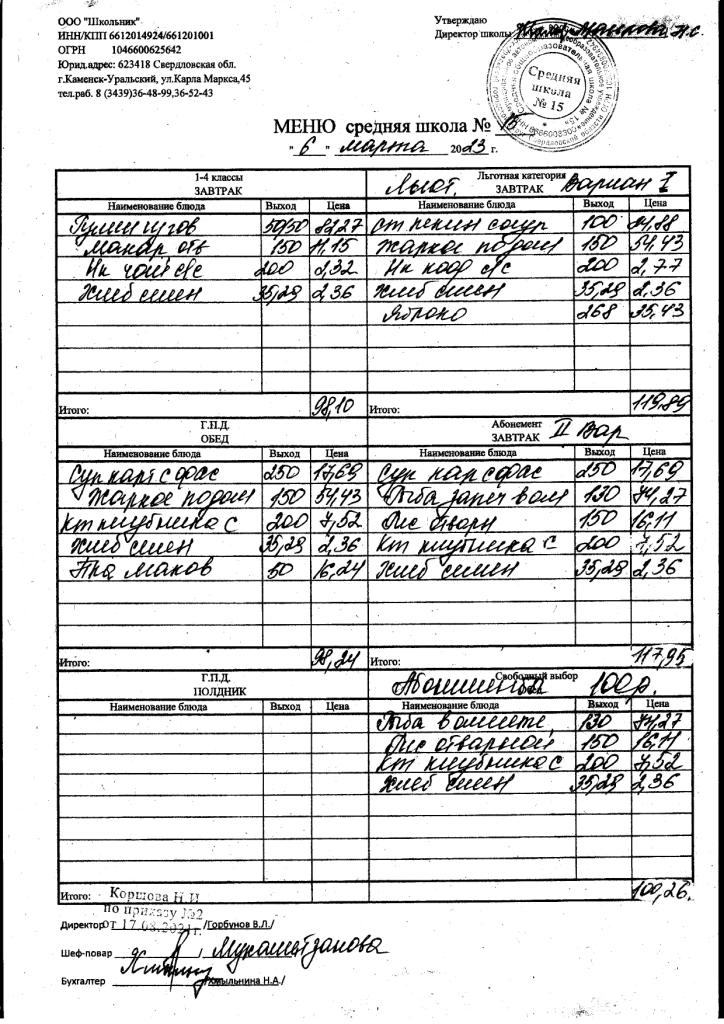 ООО "Школьник"
ИНН/КПП 6612014924/661201001
ОГРН 1046600625642
Юрид.адрес: 623418 Свердловская обл.
г.Каменск-Уральский, ул.Карла Маркса,45
тел.раб. 8 (3439)36-48-99,36-52-43
Утверждаю
Директор школы
Средняя школа № 15
МЕНЮ средняя школа № 15
" 6 " марта 2023 г.
1-4 классы
ЗАВТРАК
Льгот. Льготная категория
ЗАВТРАК Вариан I
Наименование блюда Выход Цена Наименование блюда Выход Цена
50/50 82,27 100 24,88
Макар отв 150 11.15 Жаркое по дом 150 54.43
Нк чай с/с 200 2,32 Нк коф с/с 200 2,77
Хлеб смен 35,29 2,36 Хлеб смен 35,29 2,36
Яблоко 268 35,43
Итого: 98,10 Итого: 119,89
Г.П.Д.
ОБЕД
Абонемент
ЗАВТРАК II Вар
Наименование блюда Выход Цена Наименование блюда Выход Цена
Суп карт с фас 250 17,69 Суп кар с фас 250 17,69
Жаркое по дом 150 54,43 Рыба запеч в ом 130 74,27
Кт клубника с 200 7,52 Рис отварн 150 16,11
Хлеб смен 35,29 2,36 Кт клубника с 200 7,52
маков 50 16,24 Хлеб смен 35,29 2,36
Итого: 98,24 Итого: 117,95
Г.П.Д.
ПОЛДНИК
Свободный выбор
100р.
Наименование блюда Выход Цена Наименование блюда Выход Цена
Рыба в омлете 130 74,27
Рис отварной 150 16,11
Кт клубника с 200 7,52
Хлеб смен 35,29 2,36
Итого: 100,26.
Коршова Н.И
по приказу №2
от 17.08.2021г.
Директор /Горбунов В.Л./
Шеф-повар
Бухгалтер /Хмыльнина Н.А./